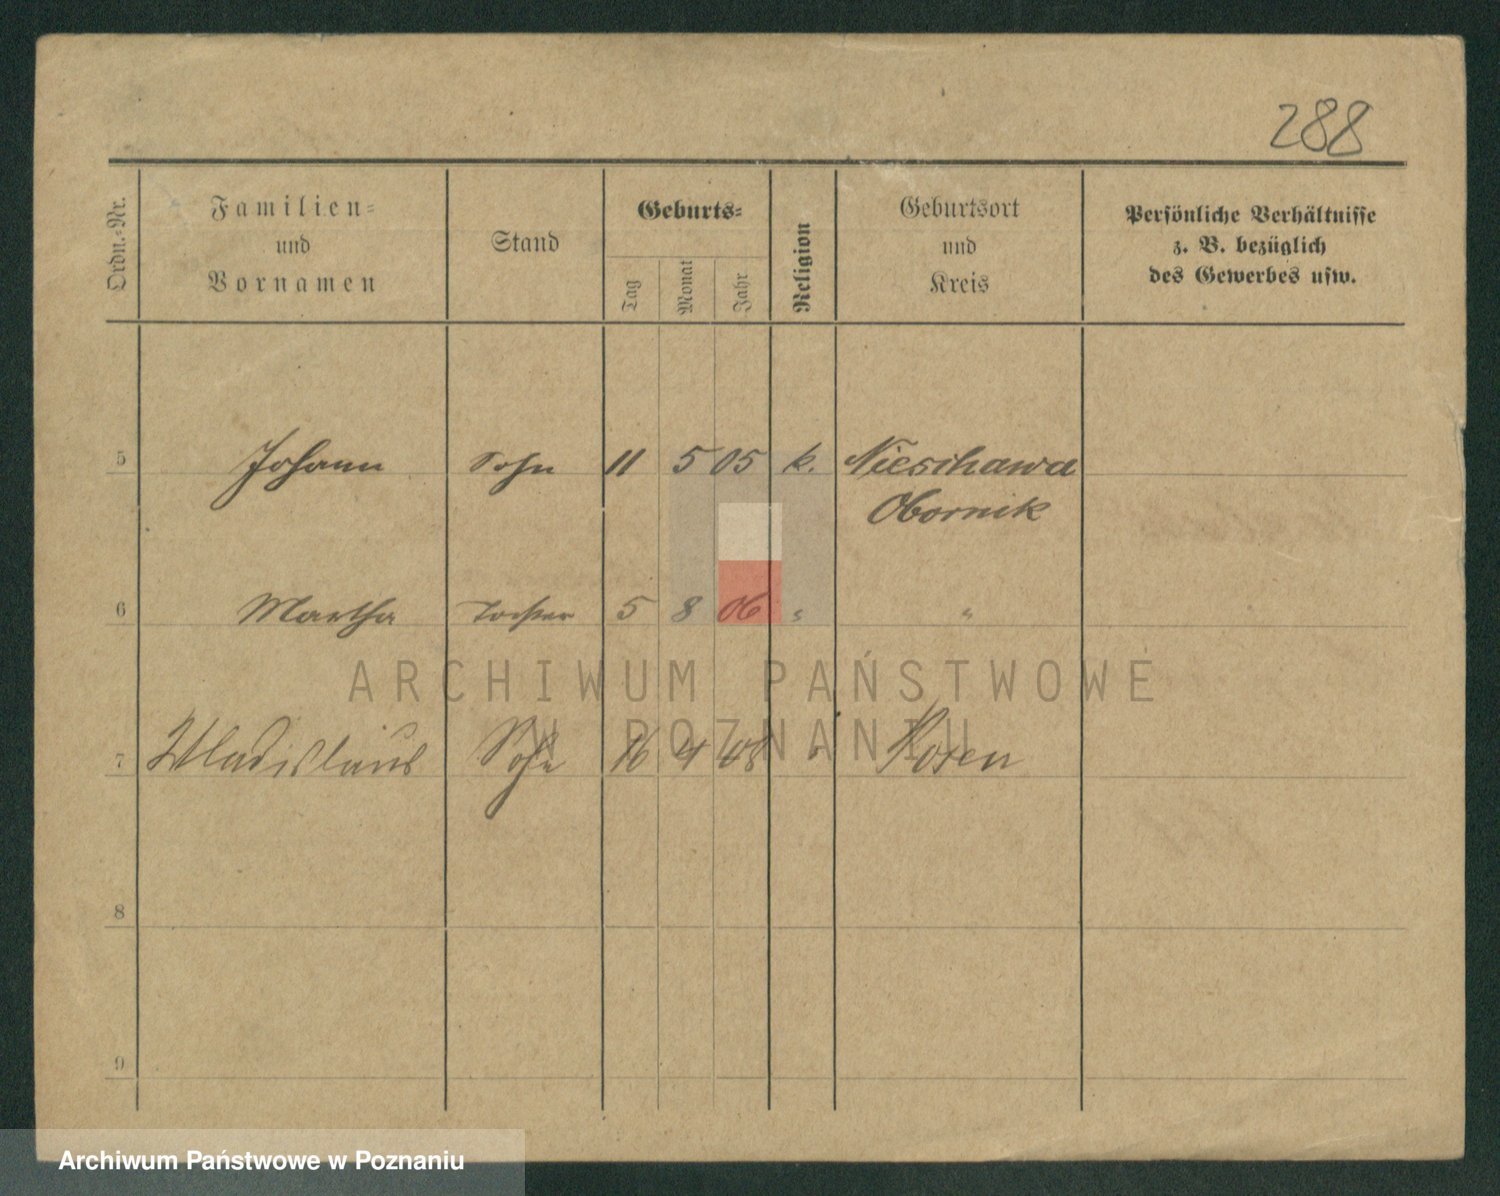 288
Ordn.-Nr.
Familien-
und
Vornamen
Stand
Geburts-
Tag
Monat
Jahr
Religion
Geburtsort
und
Kreis
Persönliche Verhältnisse
z. B. bezüglich
des Gewerbes usw.
5 Johann Sohn 11 5 05 k. Nieschawa
Obornik
6 Martha Tochter 5 8 06 " "
ARCHIWUM PAŃSTWOWE
W POZNANIU
7 Wladislaus Sohn 16 4 08 " Posen
8
9
Archiwum Państwowe w Poznaniu